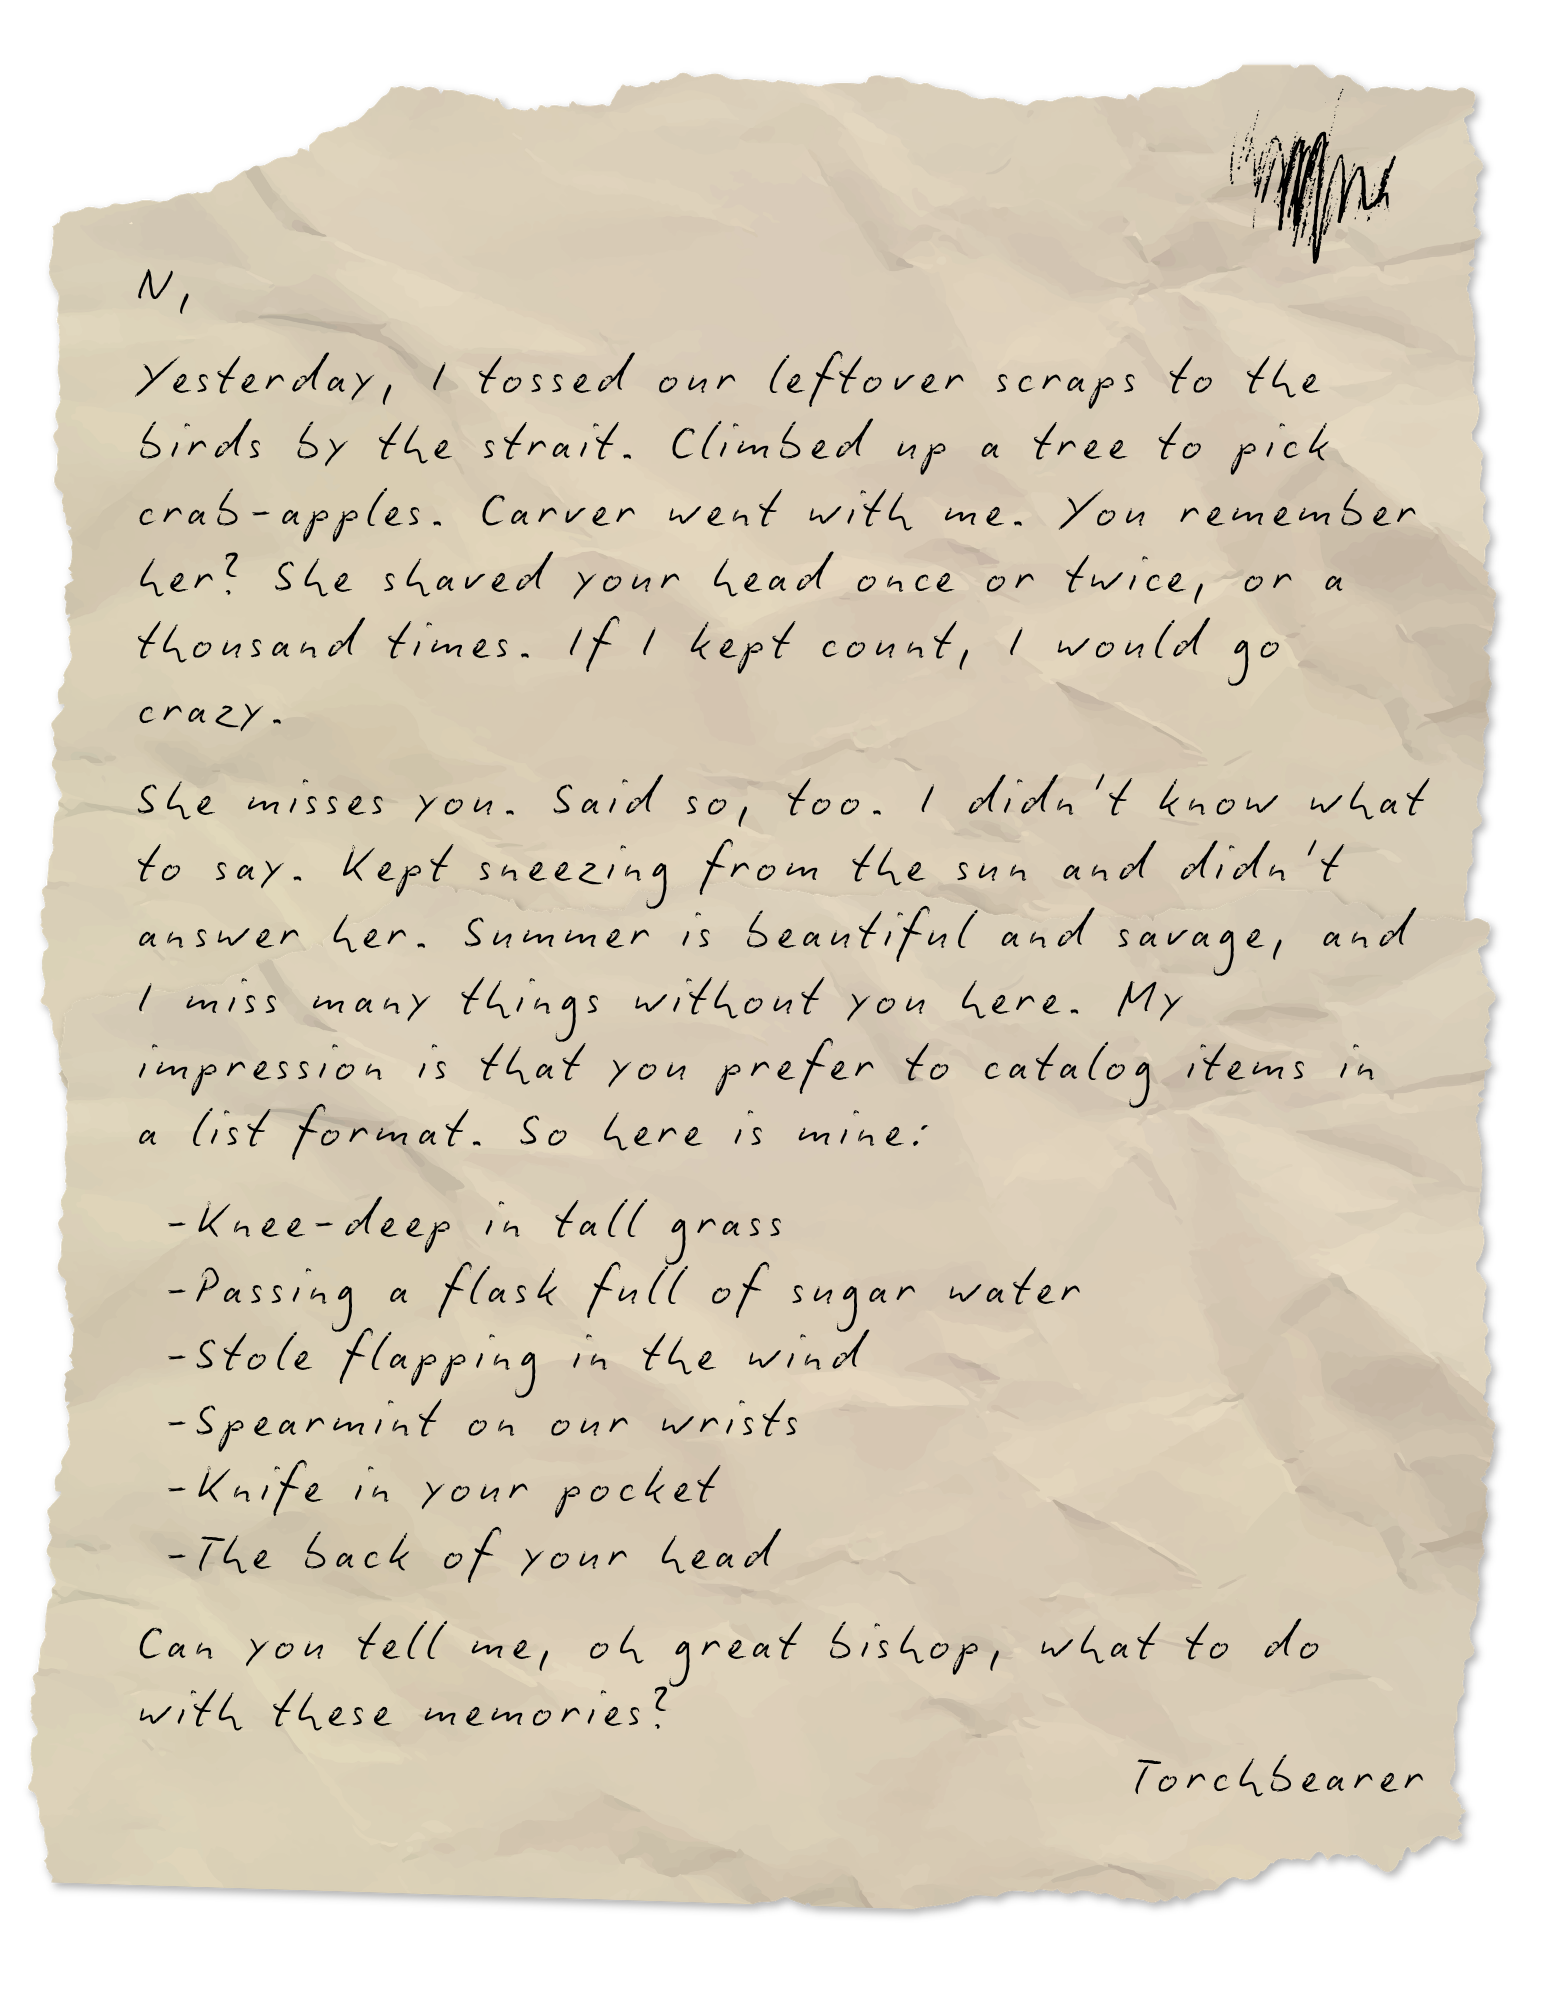 N,
Yesterday, I tossed our leftover scraps to the
birds by the strait. Climbed up a tree to pick
crab-apples. Carver went with me. You remember
her? She shaved your head once or twice, or a
thousand times. If I kept count, I would go
crazy.
She misses you. Said so, too. I didn't know what
to say. Kept sneezing from the sun and didn't
answer her. Summer is beautiful and savage, and
I miss many things without you here. My
impression is that you prefer to catalog items in
a list format. So here is mine:
-Knee-deep in tall grass
-Passing a flask full of sugar water
-Stole flapping in the wind
-Spearmint on our wrists
-Knife in your pocket
-The back of your head
Can you tell me, oh great bishop, what to do
with these memories?
Torchbearer